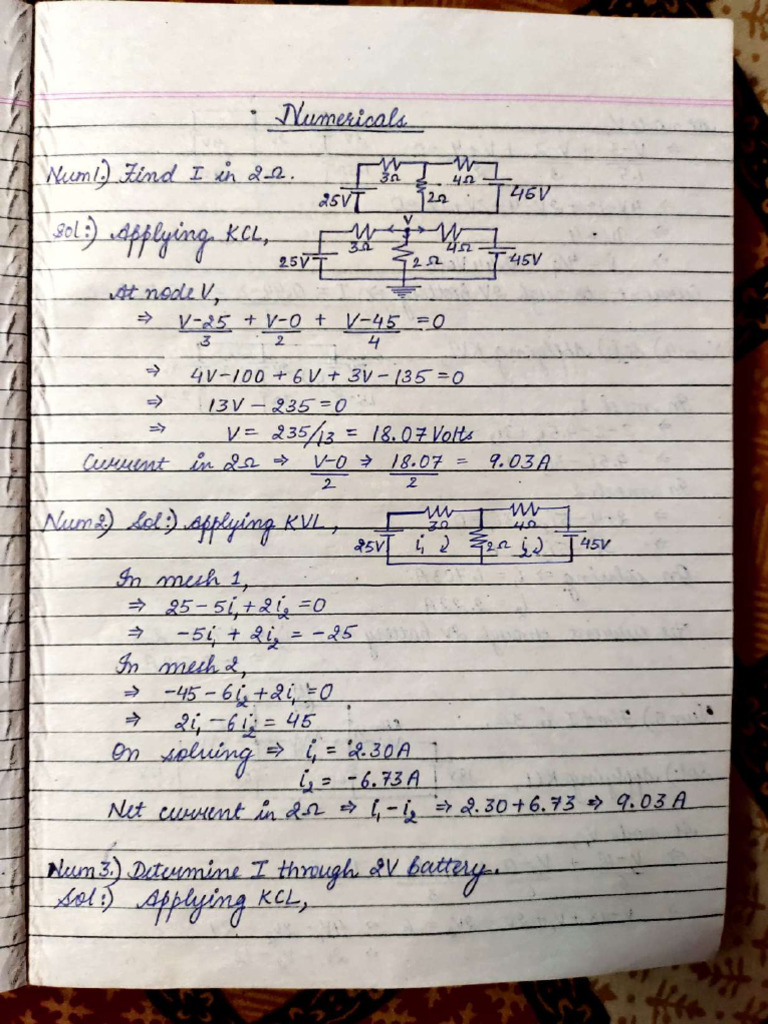 Numericals
Num1.) Find I in 2Ω.
3Ω 4Ω
25V 2Ω 45V
Sol:) Applying KCL,
V
3Ω 4Ω
25V 2Ω 45V
At node V,
⇒ V-25/3 + V-0/2 + V-45/4 = 0
⇒ 4V-100+6V+3V-135=0
⇒ 13V-235=0
⇒ V= 235/13 = 18.07 Volts
Current in 2Ω ⇒ V-0/2 ⇒ 18.07/2 = 9.03A
Num2.) Sol:) Applying KVL,
3Ω 4Ω
25V i₁ 2Ω i₂ 45V
In mesh 1,
⇒ 25-5i₁+2i₂=0
⇒ -5i₁+2i₂=-25
In mesh 2,
⇒ -45-6i₂+2i₁=0
⇒ 2i₁-6i₂=45
On solving ⇒ i₁ = 2.30A
i₂ = -6.73A
Net current in 2Ω ⇒ i₁-i₂ ⇒ 2.30+6.73 ⇒ 9.03A
Num3.) Determine I through 2V battery.
Sol:) Applying KCL,